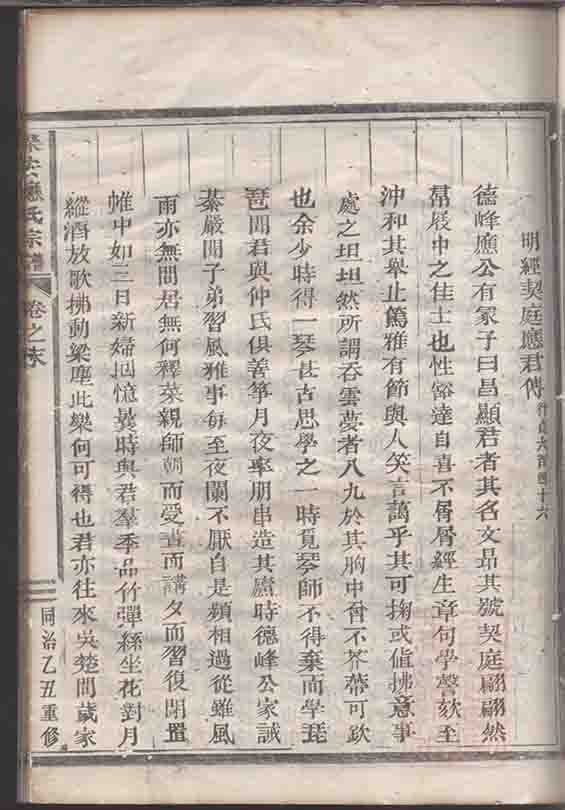 明經契庭應君傳 行貞九百四十六
德峰應公有冢子曰昌顯君者其名文昻其號契庭翩翩然
黼扆中之佳士也性豁達自喜不屑屑經生章句學謦欬至
沖和其舉止篤雅有節與人笑言藹乎其可掬或値拂意事
處之坦坦然所謂吞雲夢者八九於其胸中曾不芥蔕可欽
也余少時得一琴甚古思學之一時覓琴師不得棄而學琵
琶聞君與仲氏俱善箏月夜率朋串造其廬時德峰公家誡
綦嚴聞子弟習風雅事每至夜闌不厭自是頻相過從雖風
雨亦無間居無何釋菜親師朝而受書而講夕而習復閉置
帷中如三日新婦回憶曩時與君羣季品竹彈絲坐花對月
縱酒放歌拂動梁塵此樂何可得也君亦往來吳楚間歲家
應氏宗譜
卷之末
同治乙丑重修